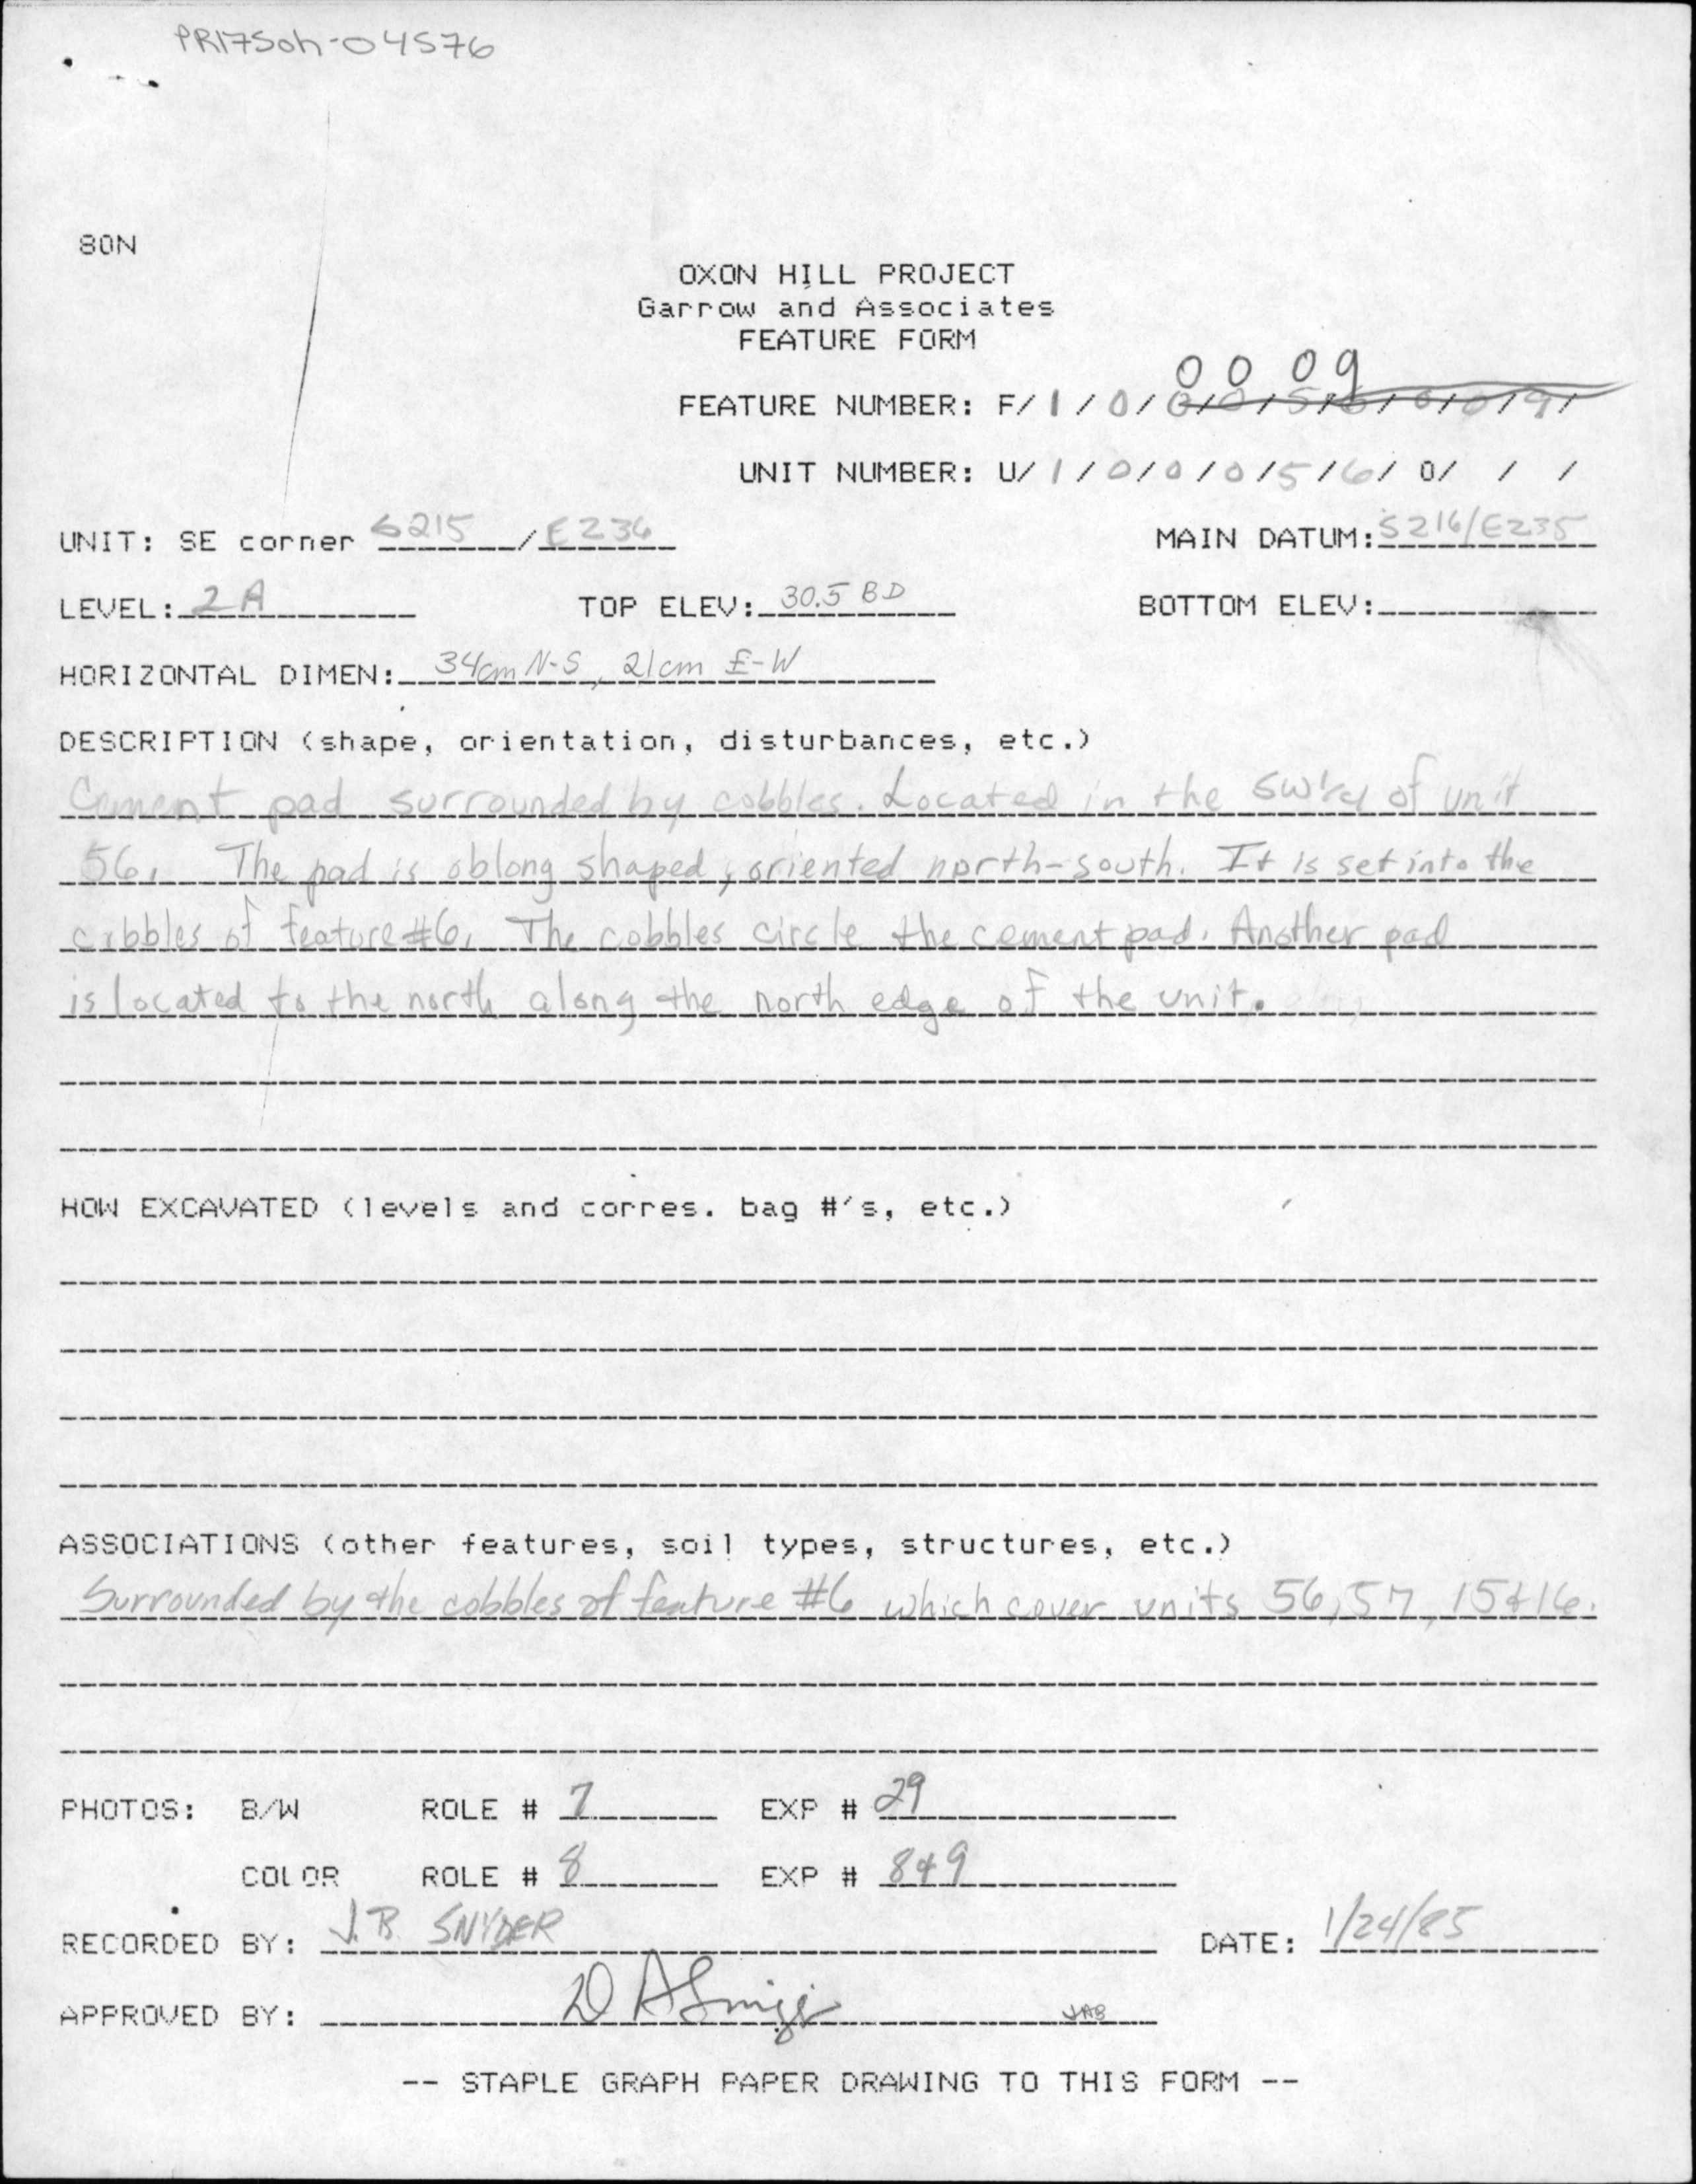 PR175oh-04576
80N
OXON HILL PROJECT
Garrow and Associates
FEATURE FORM
0 0 0 9
FEATURE NUMBER: F/ 1 / 0 / 0 / 0 / 5 / 6 / 0 / 0 / 9 /
UNIT NUMBER: U/ 1 / 0 / 0 / 0 / 5 / 6 / 0/ / /
UNIT: SE corner S215 / E236 MAIN DATUM: S216/E235
LEVEL: 2A TOP ELEV: 30.5 BD BOTTOM ELEV:
HORIZONTAL DIMEN: 34cm N-S, 21cm E-W
DESCRIPTION (shape, orientation, disturbances, etc.)
Cement pad surrounded by cobbles. Located in the of unit
56. The pad is oblong shaped, oriented north-south. It is set into the
cobbles of feature #6. The cobbles circle the cement pad. Another pad
is located to the north along the north edge of the unit.
HOW EXCAVATED (levels and corres. bag #'s, etc.)
ASSOCIATIONS (other features, soil types, structures, etc.)
Surrounded by the cobbles of feature #6 which cover units 56, 57, 15 & 16.
PHOTOS: B/W ROLE # 7 EXP # 29
COLOR ROLE # 8 EXP # 8 & 9
RECORDED BY: J.B. SNYDER DATE: 1/24/85
APPROVED BY: JAB
-- STAPLE GRAPH PAPER DRAWING TO THIS FORM --